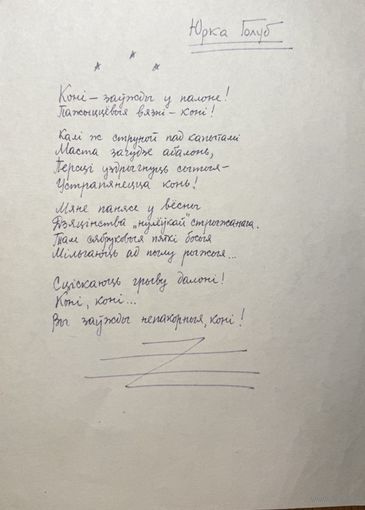 Юрка Голуб
* * *
Коні – заўжды у палоне!
Пажыццёвыя вязні – коні!
Калі ж струной пад капытамі
Маста загудзе абалонь,
Персці уздрыгнуць сотыя –
Устрапянецца конь!
Мяне панясе у вёсны
Дзяцінства „нулёўкай" стрыжанага.
Там сябруковыя пяткі босыя
Мільгаюць ад пылу рыжыя...
Сціскаюць грыву далоні!
Коні, коні...
Вы заўжды непакорныя, коні!